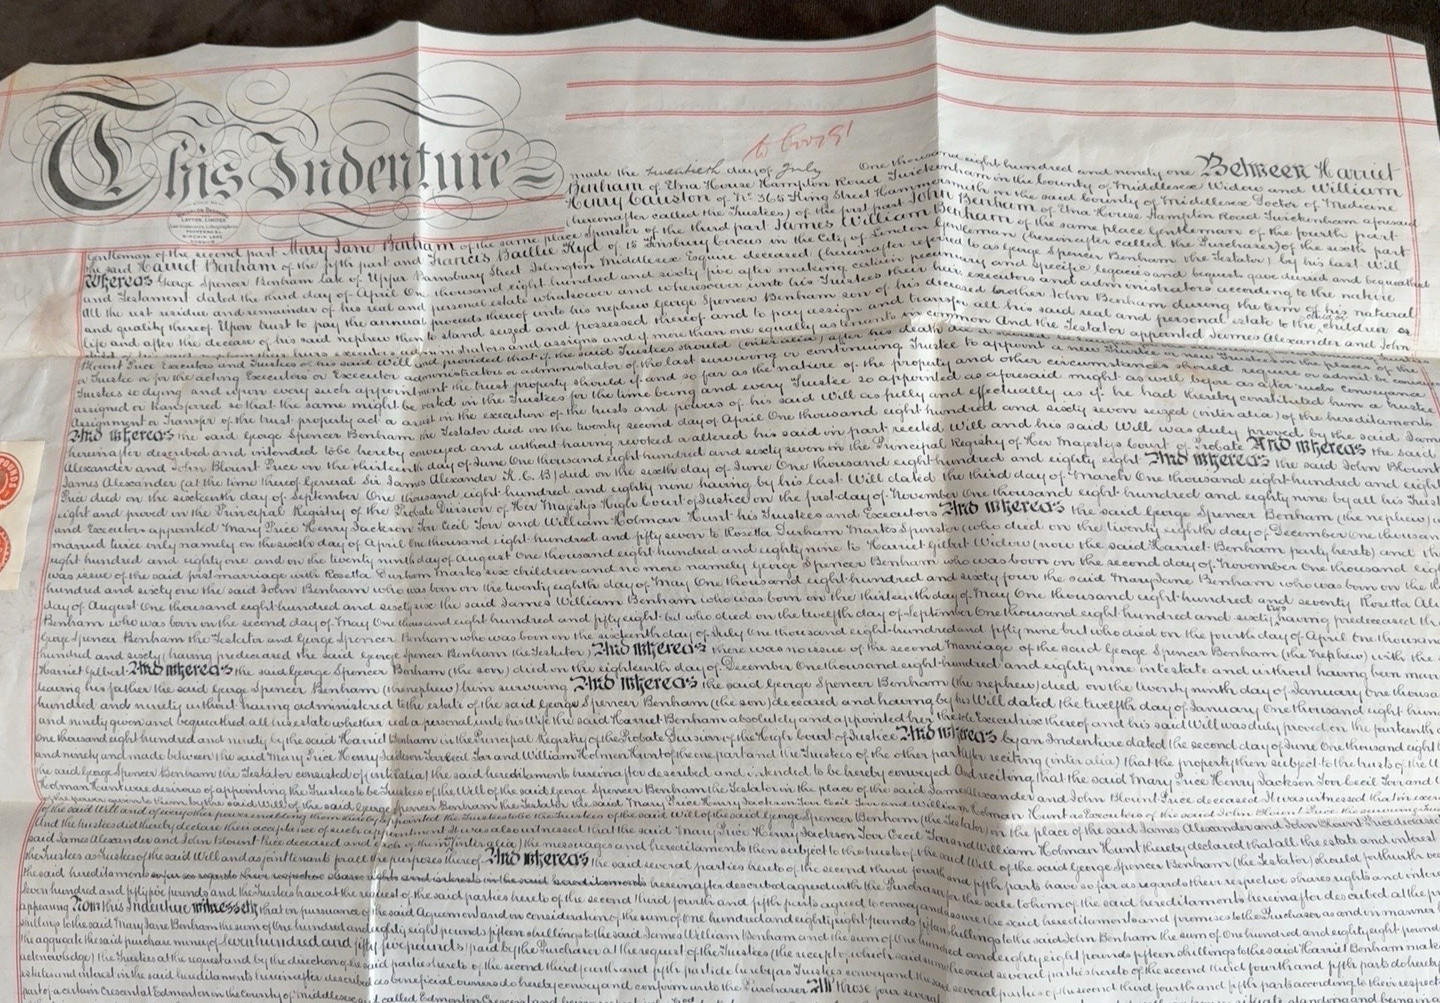 This Indenture
to Covgs!
made the twentieth day of July One thousand eight hundred and ninety one Between Harriet
Benham of Una House Hampton Road Twickenham in the County of Middlesex Widow and William
Henry Causton of No. 365 King Street Hammersmith in the said County of Middlesex Doctor of Medicine
(hereinafter called the Trustees) of the first part John Benham of Una House Hampton Road Twickenham aforesaid
Gentleman of the second part Mary Jane Benham of the same place Spinster of the third part James William Benham of the same place Gentleman of the fourth part
the said Harriet Benham of the fifth part and Francis Baillie Kyd of 15 Finsbury Circus in the City of London Gentleman (hereinafter called the Purchaser) of the sixth part
Whereas George Spencer Benham late of Upper Barnsbury Street Islington Middlesex Esquire deceased (hereinafter referred to as George Spencer Benham the Testator) by his last Will
and Testament dated the third day of April One thousand eight hundred and sixty five after making certain pecuniary and specific legacies and bequests gave devised and bequeathed
All the rest residue and remainder of his real and personal estate whatsoever and wheresoever unto his Trustees their heirs executors and administrators according to the nature
and quality thereof Upon trust to pay the annual proceeds thereof unto his nephew George Spencer Benham son of his deceased brother John Benham during the term of his natural
life and after the decease of his said nephew then to stand seized and possessed thereof and to pay assign and transfer all his said real and personal estate to the children or
administrators and assigns and if more than one equally as tenants in common And the Testator appointed James Alexander and John
Blount Price Executors and Trustees of his said Will and provided that if the said Trustees should (inter alia) after his death
or Trustee or for the acting Executors or Executor administrators or administrator of the last surviving or continuing Trustee to appoint a new Trustee or new Trustees in the places of the
Trustees so dying and upon every such appointment the trust property should if and so far as the nature of the property and other circumstances should require or admit be conveyed
assigned or transferred so that the same might be vested in the Trustees for the time being and every Trustee so appointed as aforesaid might as well before as after such Conveyance
Assignment or Transfer of the trust property act or assist in the execution of the trusts and powers of his said Will as fully and effectually as if he had thereby constituted him a trustee
And whereas the said George Spencer Benham the Testator died on the twenty second day of April One thousand eight hundred and sixty seven seized (inter alia) of the hereditaments
hereinafter described and intended to be hereby conveyed and without having revoked or altered his said in part recited Will and his said Will was duly proved by the said James
Alexander and John Blount Price on the thirteenth day of June One thousand eight hundred and sixty seven in the Principal Registry of Her Majesty's Court of Probate And whereas the said
James Alexander (at the time thereof General Sir James Alexander K.C.B) died on the sixth day of June One thousand eight hundred and eighty eight And whereas the said John Blount
Price died on the sixteenth day of September One thousand eight hundred and eighty nine having by his last Will dated the third day of March One thousand eight hundred and eighty
eight and proved in the Principal Registry of the Probate Division of Her Majesty's High Court of Justice on the first day of November One thousand eight hundred and eighty nine by all his Trustees
and Executors appointed Mary Price Henry Jackson Torr Cecil Torr and William Holman Hunt his Trustees and Executors And whereas the said George Spencer Benham (the nephew)
married twice only namely on the sixth day of April One thousand eight hundred and fifty seven to Rosetta Durham Marks Spinster (who died on the twenty eighth day of December One thousand
eight hundred and eighty one and on the twenty ninth day of August One thousand eight hundred and eighty nine to Harriet Gilbert Widow (now the said Harriet Benham party hereto) and
was issue of the said first marriage with Rosetta Durham Marks six children and no more namely George Spencer Benham who was born on the second day of November One thousand eight
hundred and sixty one the said John Benham who was born on the twenty eighth day of May One thousand eight hundred and sixty four the said Mary Jane Benham who was born on the
day of August One thousand eight hundred and sixty six the said James William Benham who was born on the thirteenth day of May One thousand eight hundred and seventy Rosetta
Benham who was born on the second day of May One thousand eight hundred and fifty eight but who died on the twelfth day of September One thousand eight hundred and sixty two having predeceased the
George Spencer Benham the Testator and George Spencer Benham who was born on the sixteenth day of July One thousand eight hundred and fifty nine but who died on the fourth day of April One thousand
hundred and sixty) having predeceased the said George Spencer Benham the Testator And whereas there was no issue of the second marriage of the said George Spencer Benham (the nephew) with the
Harriet Gilbert And whereas the said George Spencer Benham (the son) died on the eighteenth day of December One thousand eight hundred and eighty nine intestate and without having been
leaving his father the said George Spencer Benham (the nephew) him surviving And whereas the said George Spencer Benham (the nephew) died on the twenty ninth day of January One thousand
hundred and ninety without having administered to the estate of the said George Spencer Benham (the son) deceased and having by his Will dated the twelfth day of January One thousand eight hundred
and ninety given and bequeathed all his estate whether real or personal unto his Wife the said Harriet Benham absolutely and appointed her sole Executrix thereof and his said Will was duly proved on the fourteenth
One thousand eight hundred and ninety by the said Harriet Benham in the Principal Registry of the Probate Division of the High Court of Justice And whereas by an Indenture dated the second day of June One thousand eight
and ninety and made between the said Mary Price Henry Jackson Torr Cecil Torr and William Holman Hunt of the one part and the Trustees of the other part after reciting (inter alia) that the property then subject to the trusts of the
the said George Spencer Benham the Testator consisted of (inter alia) the said hereditaments hereinafter described and intended to be hereby conveyed And reciting that the said Mary Price Henry Jackson Torr Cecil Torr and
Holman Hunt were desirous of appointing the Trustees to be Trustees of the Will of the said George Spencer Benham the Testator in the place of the said James Alexander and John Blount Price deceased It was witnessed that in
of the power given to them by the said Will of the said George Spencer Benham the Testator the said Mary Price Henry Jackson Torr Cecil Torr and William Holman Hunt as Executors of the said John Blount Price
of the said Will and of every other power enabling them thereby appointed the Trustees to be the Trustees of the said Will of the said George Spencer Benham (the Testator) in the place of the said James Alexander and John Blount Price
And the Trustees did thereby declare their acceptance of such appointment It was also witnessed that the said Mary Price Henry Jackson Torr Cecil Torr and William Holman Hunt thereby declared that all the estate and interest
said James Alexander and John Blount Price deceased and each of them in (inter alia) the messuages and hereditaments then subject to the trusts of the said Will of the said George Spencer Benham (the Testator) should forthwith
the Trustees as Trustees of the said Will and as joint tenants for all the purposes thereof And whereas the said several parties hereto of the second third fourth and fifth parts have so far as regards their respective shares rights and
the said hereditaments hereinafter described agreed with the Purchaser for the sale to him of the said hereditaments hereinafter described at the
seven hundred and fifty five pounds and the Trustees have at the request of the said parties hereto of the second third fourth and fifth parts agreed to convey and assure the said hereditaments and premises to the Purchaser as and in manner
appearing Now this Indenture witnesseth that in pursuance of the said Agreement and in consideration of the sum of One hundred and eighty eight pounds fifteen shillings to the said John Benham the sum of One hundred and eighty eight pounds
shillings to the said Mary Jane Benham the sum of One hundred and eighty eight pounds fifteen shillings to the said James William Benham and the sum of One hundred and eighty eight pounds fifteen shillings to the said Harriet Benham
the aggregate the said purchase money of seven hundred and fifty five pounds paid by the Purchaser at the request of the Trustees (the receipt of which said sums the said several parties hereto of the second third fourth and fifth parts do hereby
acknowledge) the Trustees at the request and by the direction of the said parties hereto of the second third fourth and fifth parts do hereby as Trustees convey and the said several parties of the second third fourth and fifth parts according to their
estates and interest in the said hereditaments hereinafter described as beneficial owners do hereby convey and confirm unto the Purchaser All those
part of a certain Crescent at Edmonton in the County of Middlesex called Edmonton Crescent